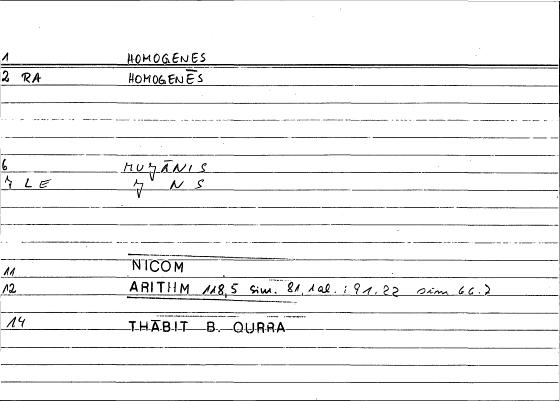 1 HOMOGENES
2 RA HOMOGENĒS
6 MUǦĀNIS
7 LE Ǧ N S
11 NICOM
12 ARITHM 118,5 sim. 81,1 al. : 91.22 sim 66.2
14 THĀBIT B. QURRA